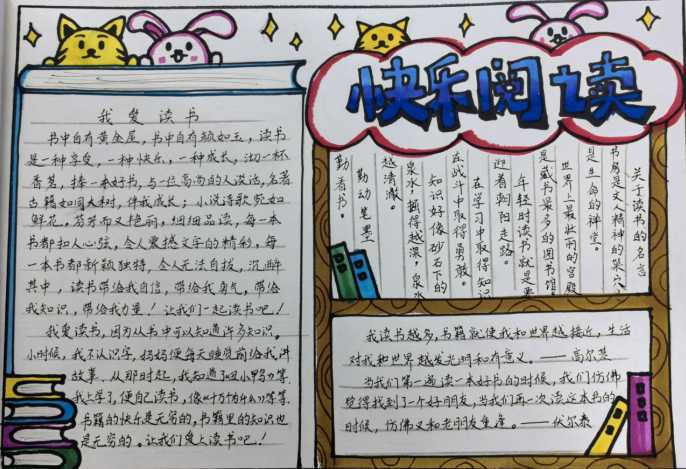 快乐阅读
我爱读书
书中自有黄金屋，书中自有颜如玉，读书
是一种享受，一种快乐，一种成长，沏一杯
香茗，捧一本好书，与一位高尚的人谈话，名著
古籍如同大树，伴我成长；小说诗歌宛如
鲜花，芬芳而又艳丽，细细品读，每一本
书都扣人心弦，令人震撼文字的精彩，每
一本书都新颖独特，令人无法自拔，沉醉
其中，读书带给我自信，带给我勇气，带给
我知识，带给我力量！让我们一起读书吧！
我爱读书，因为从书中可以知道许多知识。
小时候，我不认识字，妈妈便每天睡觉前给我讲
故事．从那时起，我知道了《丑小鸭》等等．
我上学了，便自己读书，像《十万个为什么》等等．
书籍的快乐是无穷的，书籍里的知识也
是无穷的．让我们爱上读书吧！
关于读书的名言
书房是文人精神的巢穴，
是生命的禅堂。
世界上最壮丽的宫殿
是藏书最多的图书馆。
年轻时读书就是
迎着朝阳走路。
在学习中取得知识
在战斗中取得勇敢。
知识好像砂石下的
泉水，掘得越深，泉水
越清澈。
勤动笔墨
勤看书。
我读书越多，书籍就使我和世界越接近，生活
对我和世界越发光明和有意义。——高尔基
当我们第一遍读一本好书的时候，我们仿佛
觉得找到了一个好朋友，当我们再一次读这本书的
时候，仿佛又和老朋友重逢。——伏尔泰